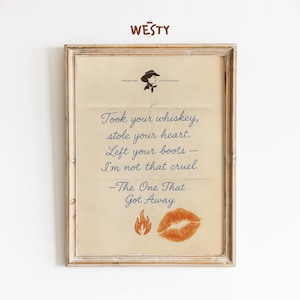 WESTY
Took your whiskey,
stole your heart.
Left your boots —
I'm not that cruel.
—The One That
Got Away